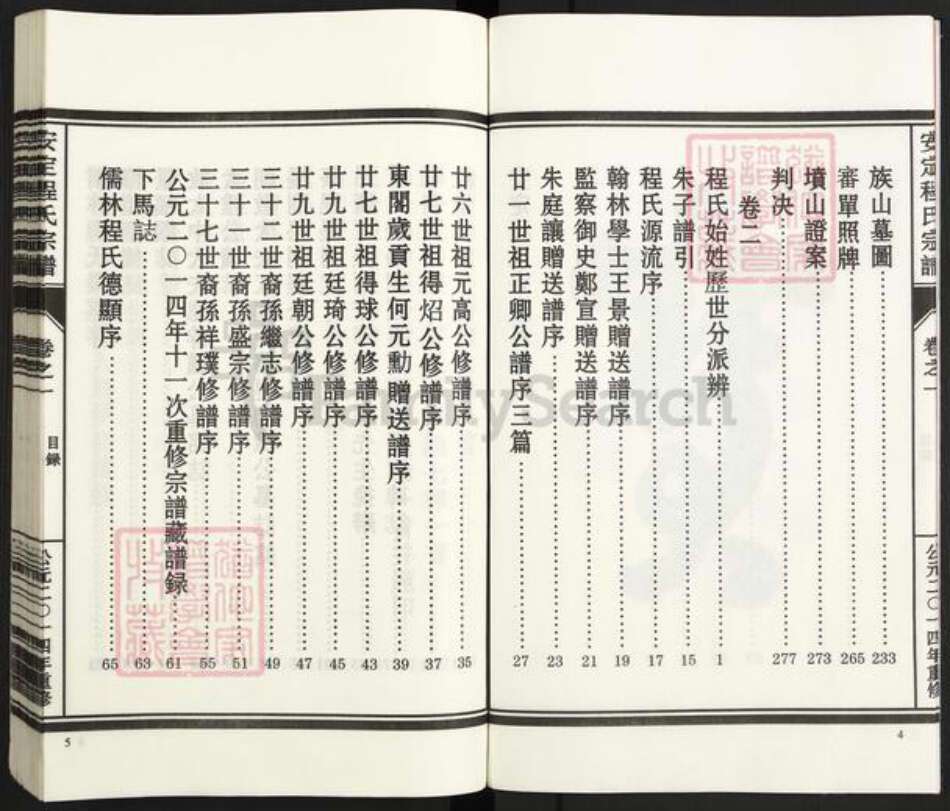 安定程氏宗譜
卷之一
公元二〇一四年重修
族山墓圖 233
審單照牌 265
墳山證案 273
判决 277
卷二
程氏始姓歷世分派辨 1
朱子譜引 15
程氏源流序 17
翰林學士王景贈送譜序 19
監察御史鄭宣贈送譜序 21
朱庭讓贈送譜序 23
廿一世祖正卿公譜序三篇 27
4
廿六世祖元高公修譜序 35
廿七世祖得炤公修譜序 37
東閣歲貢生何元勳贈送譜序 39
廿七世祖得球公修譜序 43
廿九世祖廷琦公修譜序 45
廿九世祖廷朝公修譜序 47
三十二世裔孫繼志修譜序 49
三十一世裔孫盛宗修譜序 51
三十七世裔孫祥璞修譜序 55
公元二〇一四年十一次重修宗譜藏譜録 61
下馬誌 63
儒林程氏德顯序 65
安定程氏宗譜
卷之一
目録
公元二〇一四年重修
5
FamilySearch